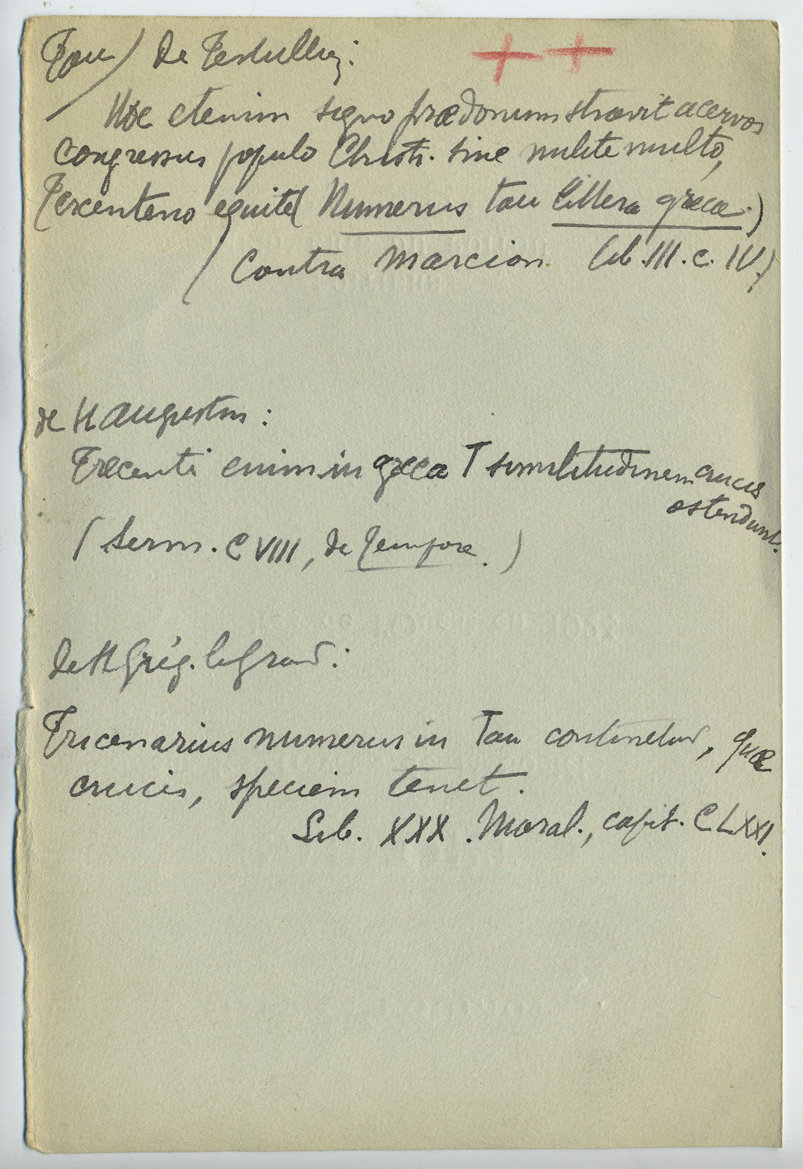 Tau) De Tertullien:
Hoc etenim signo prædonum stravit acervos
congressus populo Christi. sine milite multo,
Tercenteno equite (Numerus tau littera græca.)
(Contra Marcion. lib. III. c. IV)
de St Augustin:
Trecenti enim in græca T similitudinem crucis
ostendunt.
(Serm. CVIII, de Tempore.)
de St Grég. le Grand:
Trecenarius numerus in Tau continetur, quæ
crucis, speciem tenet.
Lib. XXX. Moral., capit. CLXXI.